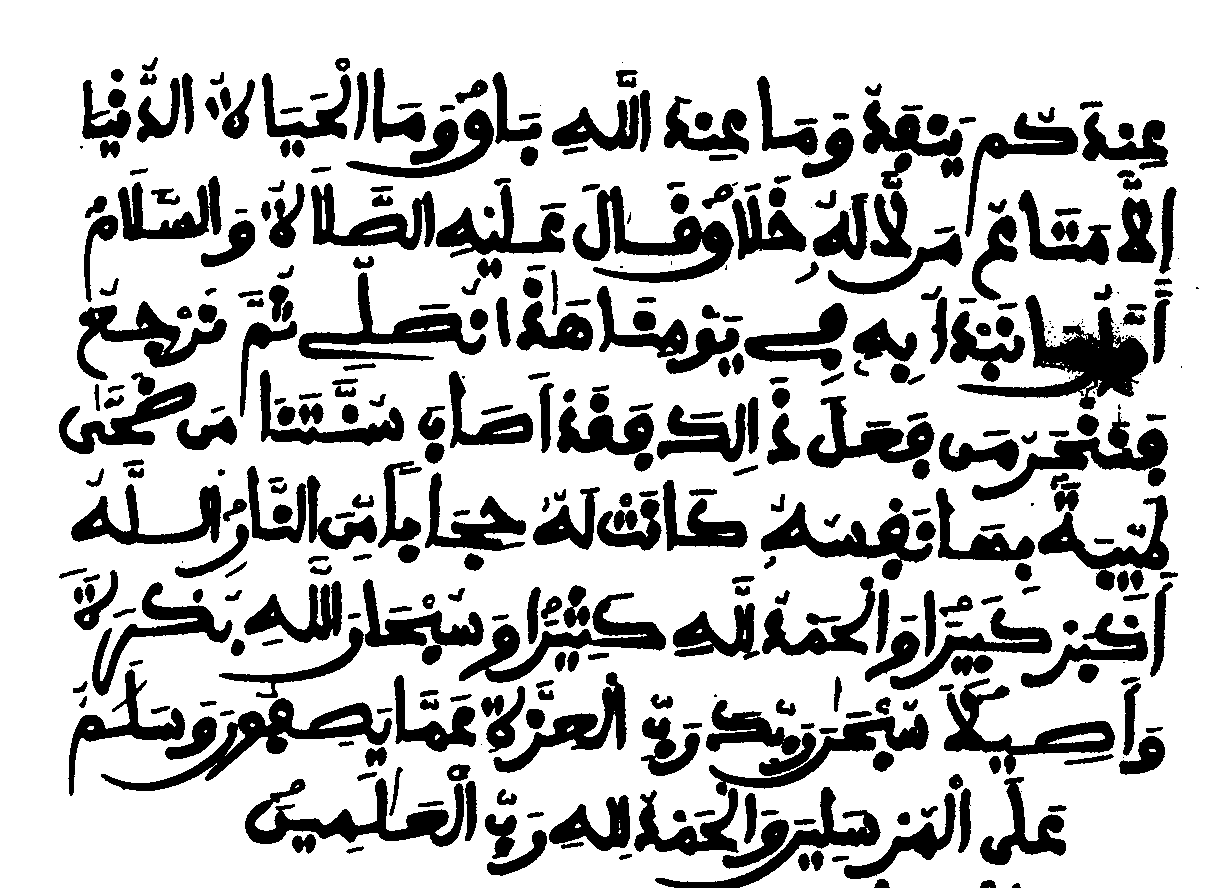 عِندَكُمْ يَنفَدُ وَمَا عِندَ اللَّهِ بَاقٍ وَمَا الْحَيَاةُ الدُّنْيَا
إِلَّا مَتَاعُ مَن لَّا لَهُ خَلَاقٌ وَقَالَ عَلَيْهِ الصَّلَاةُ وَالسَّلَامُ
أَوَّلُ مَا نَبْدَأُ بِهِ فِي يَوْمِنَا هَذَا أَن نُصَلِّي ثُمَّ نَرْجِعُ
فَنَنْحَرُ مَن فَعَلَ ذَالِكَ فَقَدْ أَصَابَ سُنَّتَنَا مَن ضَحَّى
طَيِّبَةً بِهَا نَفْسُهُ كَانَتْ لَهُ حِجَابًا مِّنَ النَّارِ اللَّهُ
أَكْبَرُ كَبِيرًا وَالْحَمْدُ لِلَّهِ كَثِيرًا وَسُبْحَانَ اللَّهِ بُكْرَةً
وَأَصِيلًا سُبْحَٰنَ رَبِّكَ رَبِّ الْعِزَّةِ عَمَّا يَصِفُونَ وَسَلَٰمٌ
عَلَى الْمُرْسَلِينَ وَالْحَمْدُ لِلهِ رَبِّ الْعَٰلَمِينَ